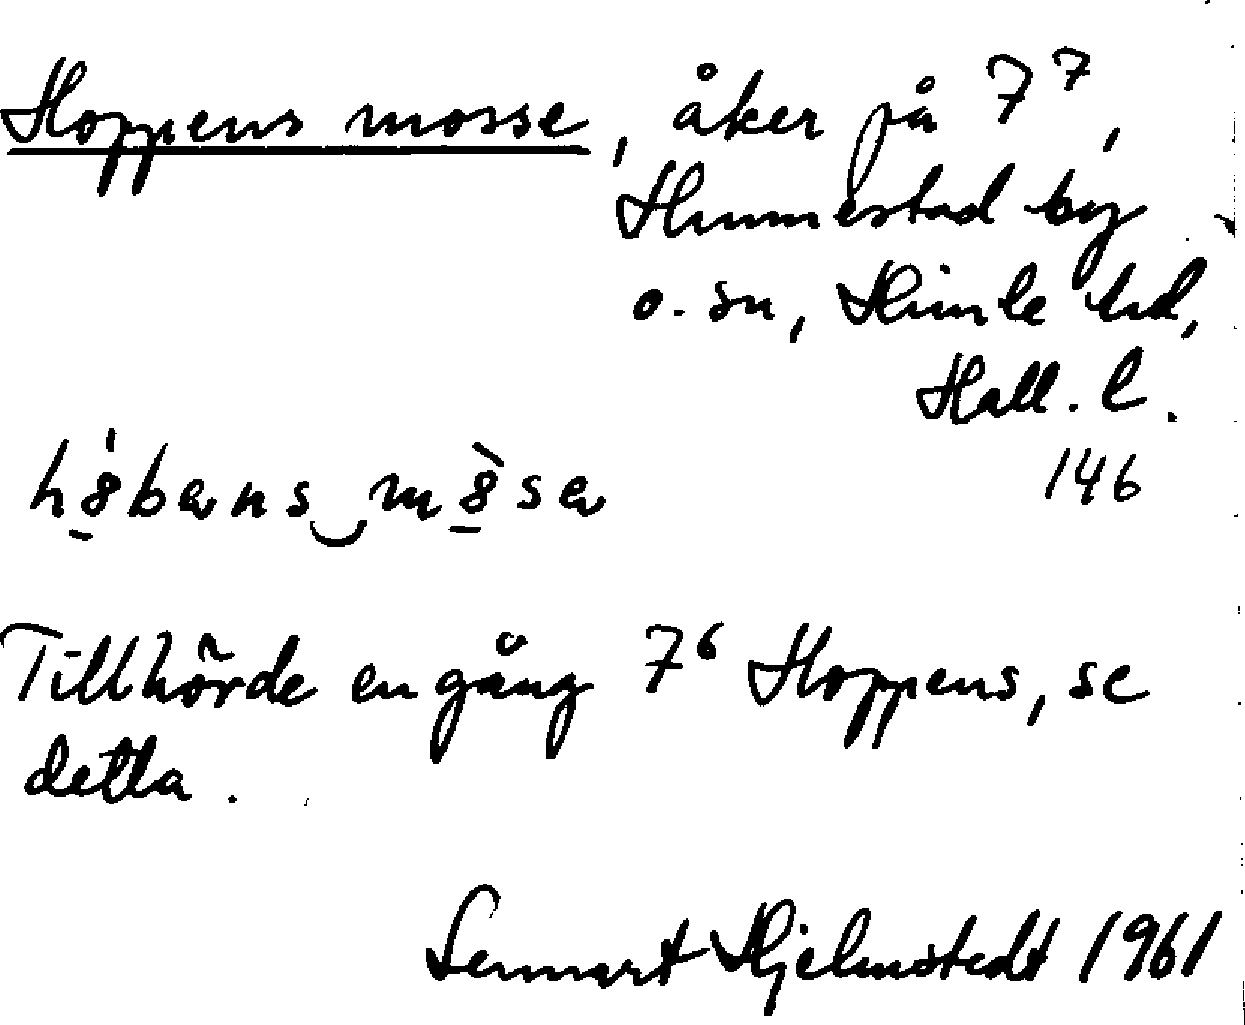 Hoppens mosse, åker på 7⁷,
Hunnestad by
o. sn, Himle hd,
Hall. l.
146
Tillhörde en gång 7⁶ Hoppens, se
detta.
Lennart Hjelmstedt 1961